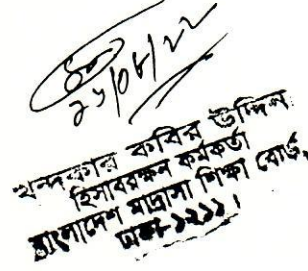 ২১/০৮/২২
খন্দকার কবির উদ্দিন
হিসাবরক্ষন কর্মকর্তা
বাংলাদেশ মাদ্রাসা শিক্ষা বোর্ড,
ঢাকা-১২১১।